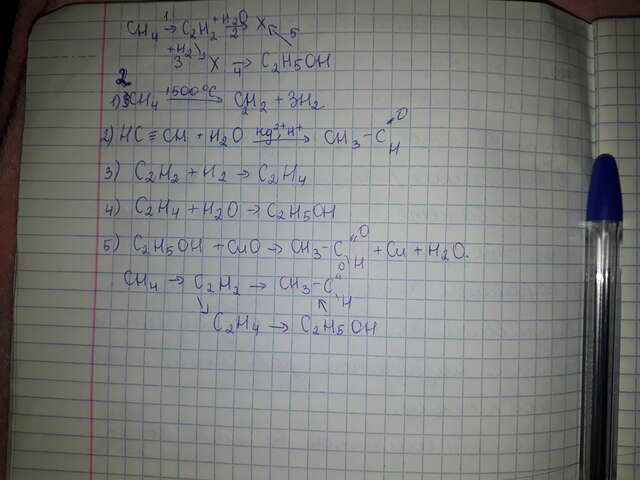 CH₄ →¹ C₂H₂ +H₂O →² X ⇐ 5
+H₂ →³ Y →⁴ C₂H₅OH
1) 2CH₄ 1500°C → C₂H₂ + 3H₂
2) HC≡CH + H₂O Hg²⁺H⁺ → CH₃-C O H
3) C₂H₂ + H₂ → C₂H₄
4) C₂H₄ + H₂O → C₂H₅OH
5) C₂H₅OH + CuO → CH₃-C O H + Cu + H₂O.
CH₄ → C₂H₂ → CH₃-C O H
C₂H₄ → C₂H₅OH